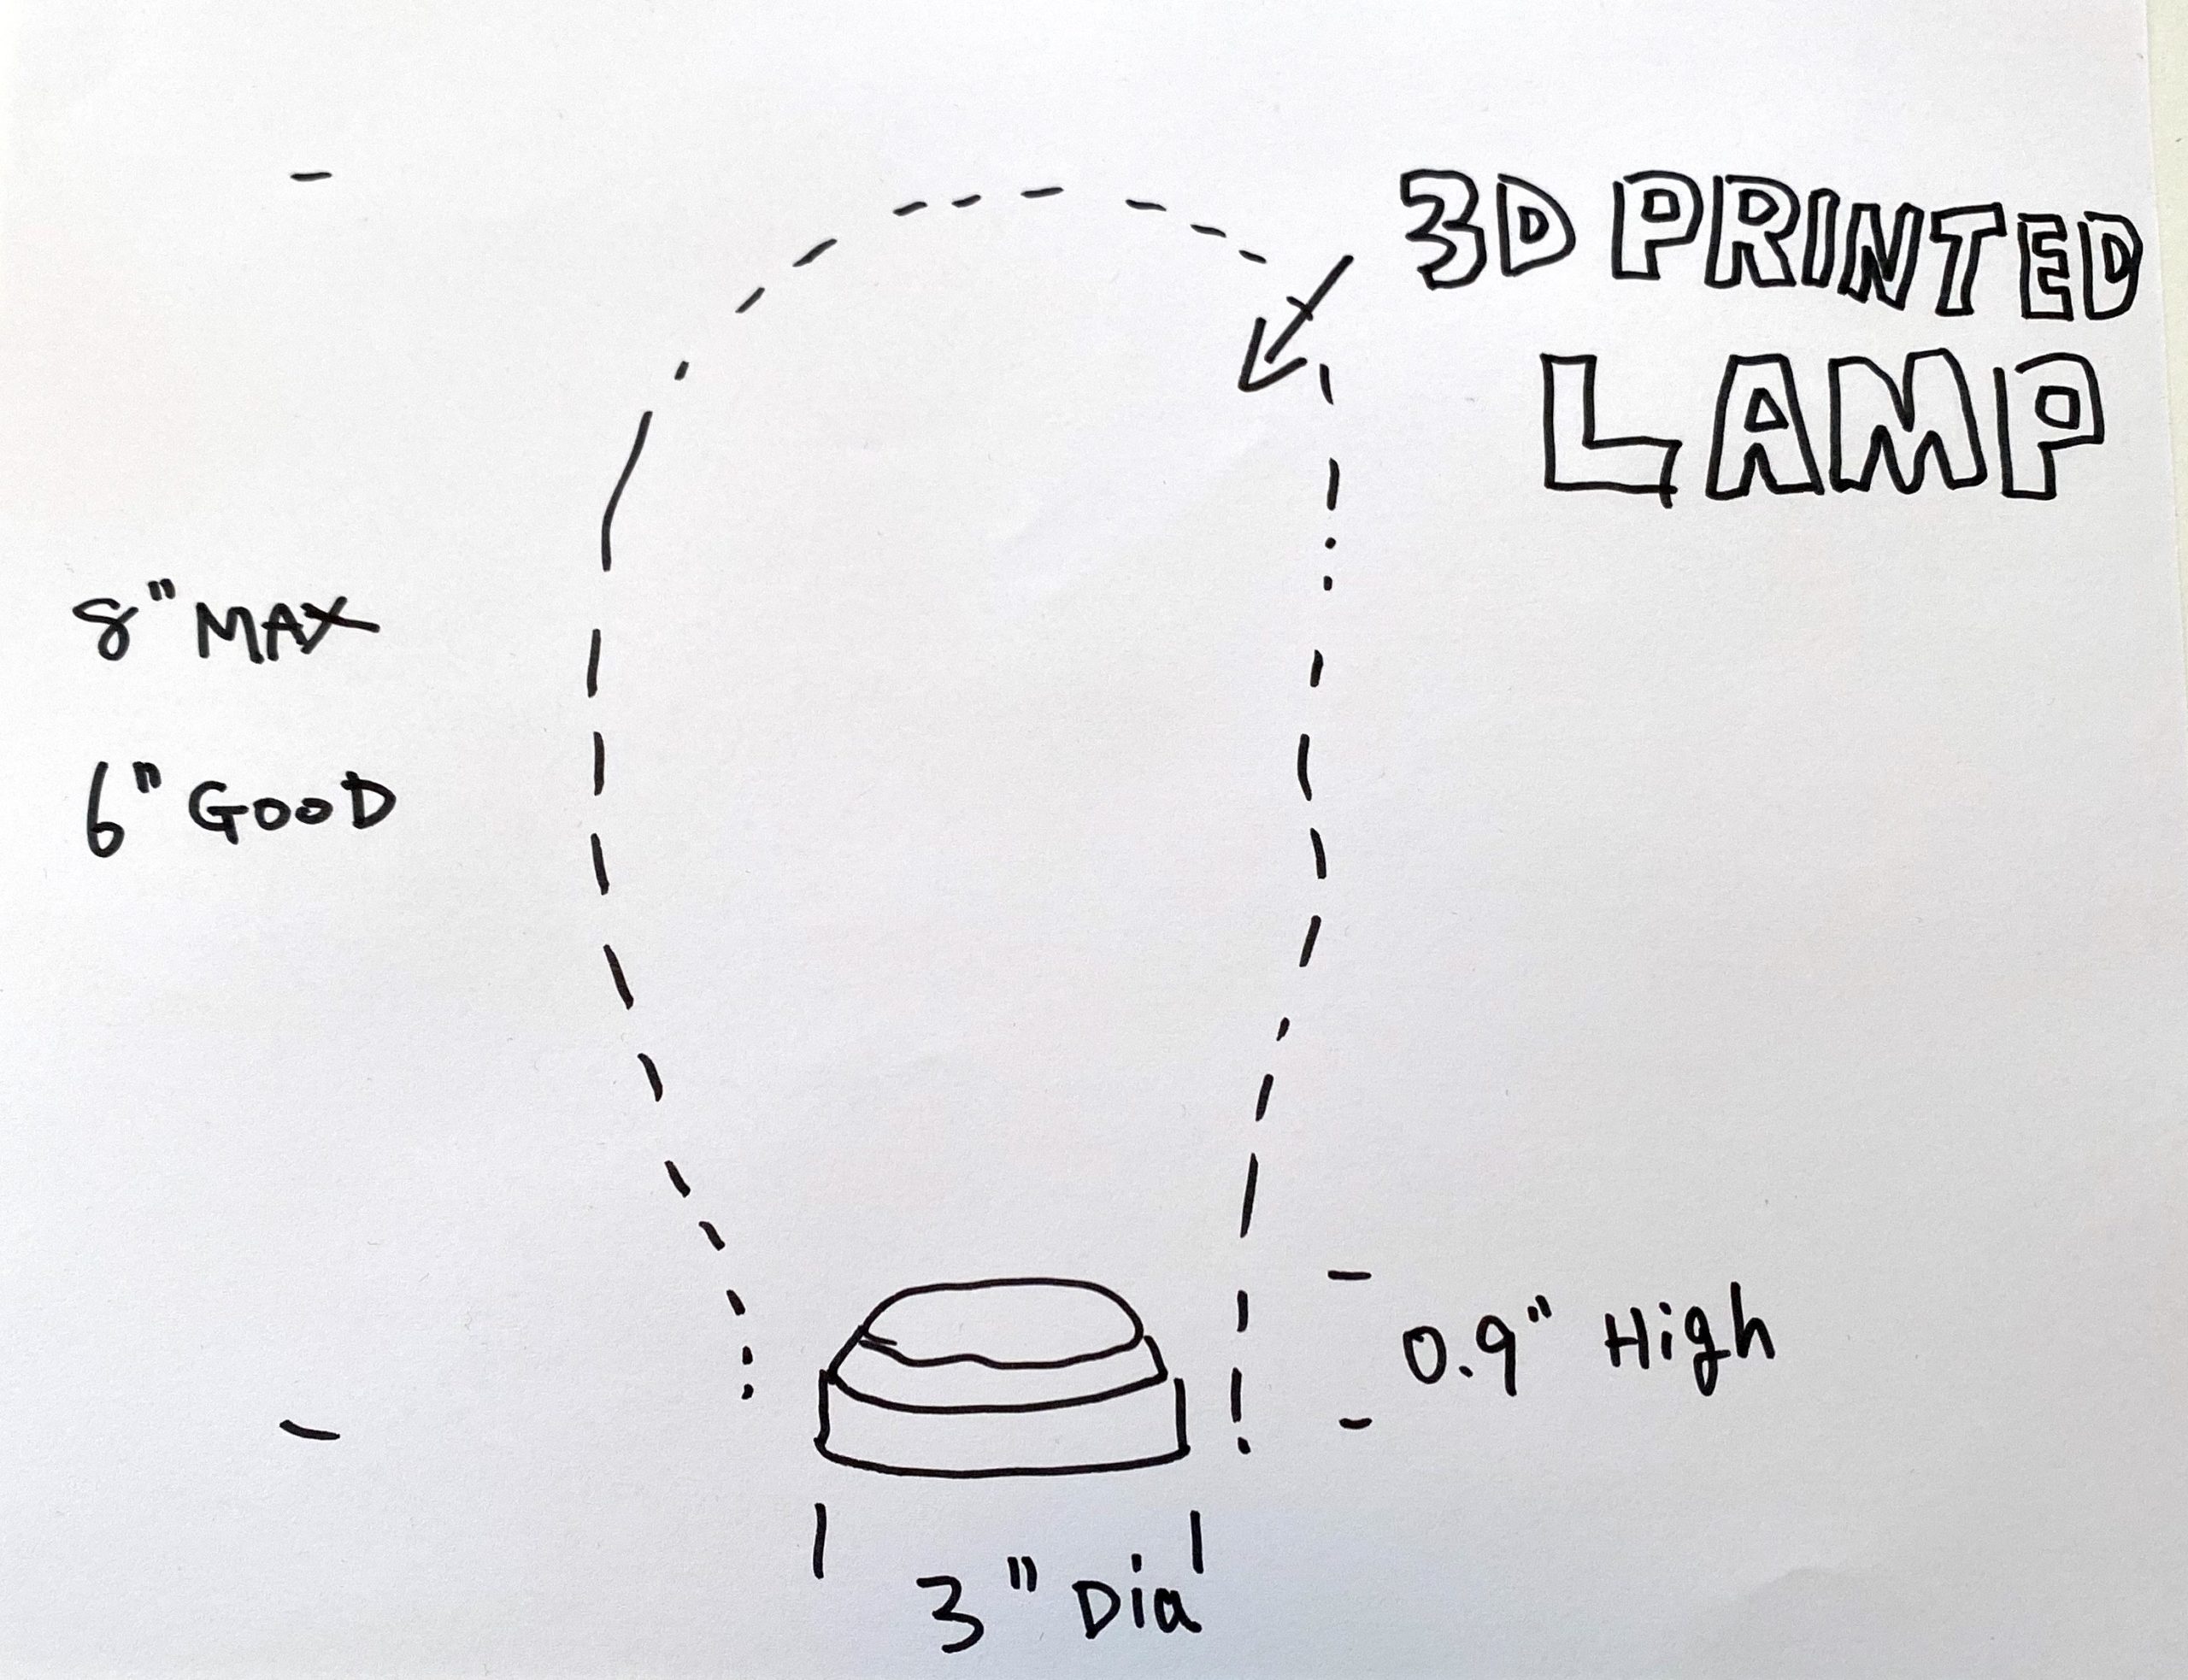 3D PRINTED
LAMP
8" MAX
6" GOOD
0.9" High
3" Dia